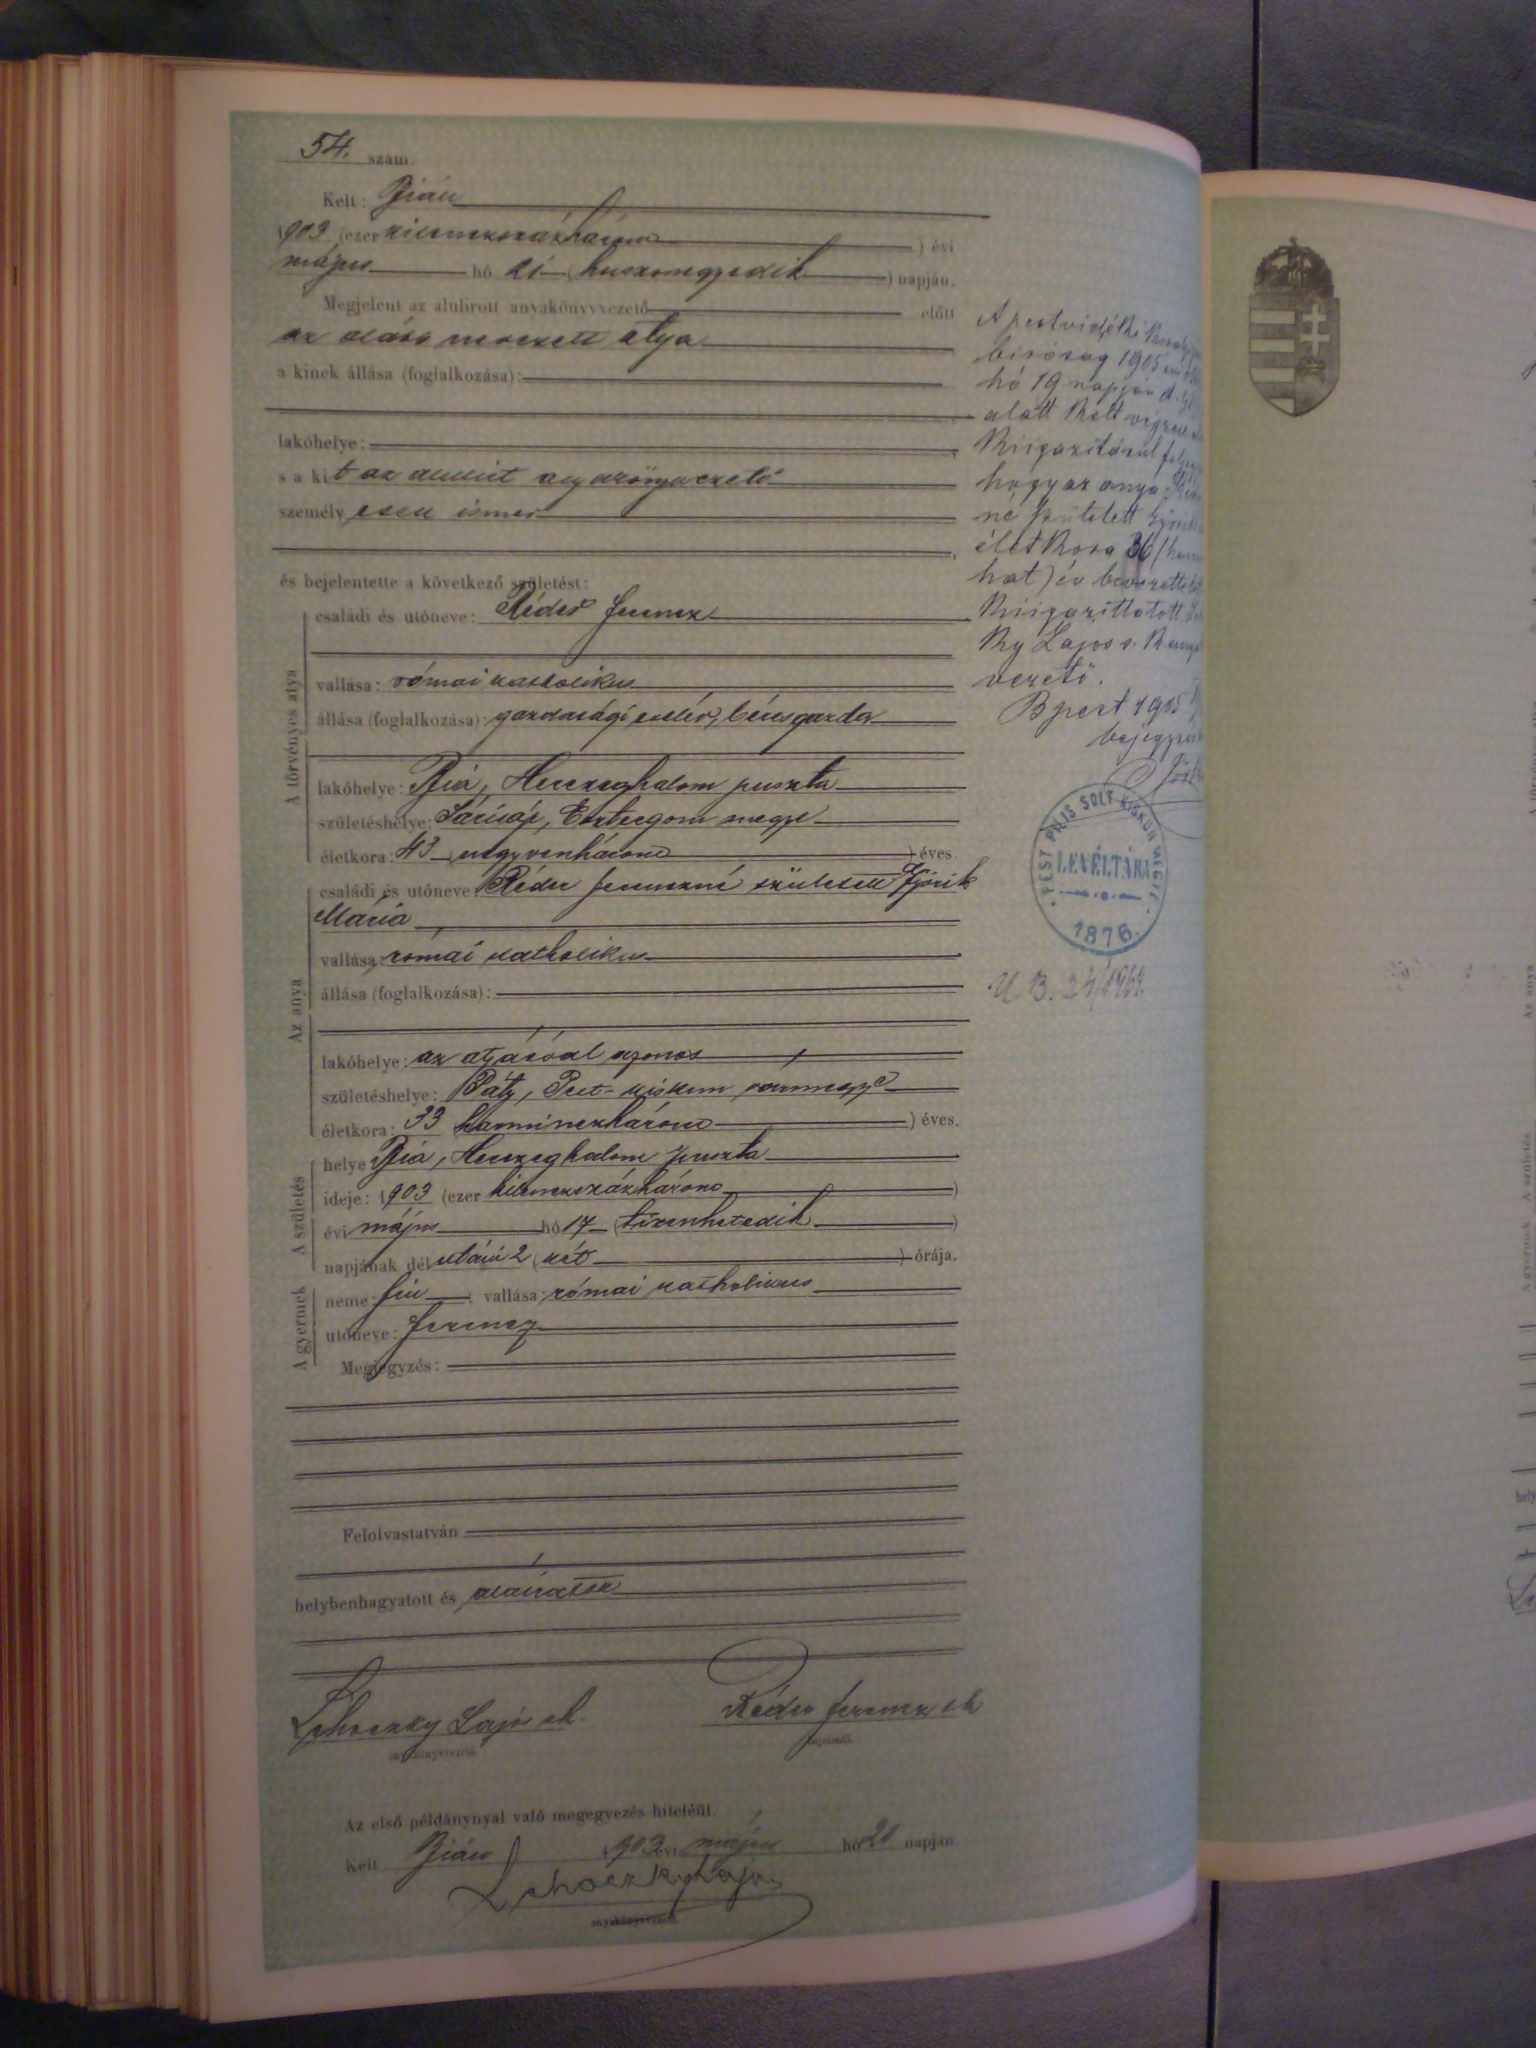 54. szám.
Kelt: Bián
1903 (ezer kilencszázhárom) évi
május hó 21 (huszonegyedik) napján.
Megjelent az alulirott anyakönyvvezető előtt
az alább nevezett atya
a kinek állása (foglalkozása):
lakóhelye:
s a kit az alulirt anyakönyvvezető
személyesen ismer
és bejelentette a következő születést:
A törvényes atya
családi és utóneve: Réder Ferencz
vallása: római katholikus
állása (foglalkozása): gazdasági cseléd, béresgazda
lakóhelye: Bia, Herczeghalom puszta
születéshelye: Sárisáp, Esztergom megye
életkora: 43 (negyvenhárom) éves.
Az anya
családi és utóneve Réder Ferenczné született Győrik
Mária
vallása: római katholikus
állása (foglalkozása):
lakóhelye: az atyáéval azonos
születéshelye: Páty, Pest-kiskun vármegye
életkora: 33 (harminczhárom) éves.
A születés
helye Bia, Herczeghalom puszta
ideje: 1903 (ezer kilenczszázhárom)
évi május hó 17 (tizenhetedik)
napjának dél utáni 2 (két) órája.
A gyermek
neme: fiu vallása: római katholikus
utóneve: Ferencz
Megjegyzés:
Felolvastatván
helybenhagyatott és aláiratott
Lehoczky Lajos sk. Réder Ferencz sk
anyakönyvvezető bejelentő
Az első példánynyal való megegyezés hiteléül.
Kelt Bián 1903 évi május hó 21 napján
Lehoczky Lajos
anyakönyvvezető
A pestvidéki
biróság 1905
hó 19 napján d.
alatt kelt végzése
Kiigazitásul
hogy az anya
né született
életkora 36 (harmin
hat) év
Kiigazittatott
ky Lajos s. k. anya
vezető.
Bpest 1905
bejegyzés
PEST PILIS SOLT KISKUN MEGYE
LEVÉLTÁRA
1876.
U. B. 24/1964.